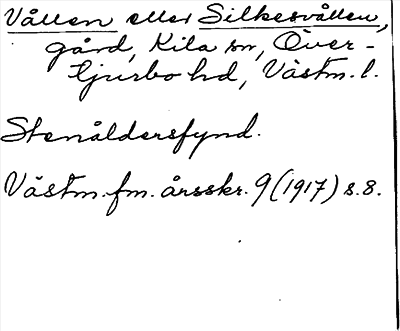 Vållen eller Silkesvållen,
gård, Kila sn, Över-
tjurbo hd, Västm. l.
Stenåldersfynd.
Västm. fm. årsskr. 9 (1917) s. 8.